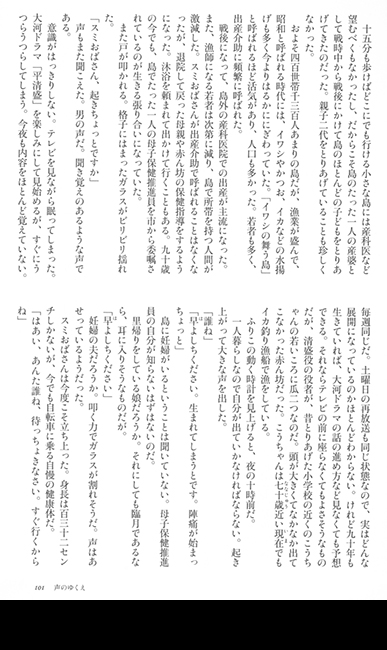 十五分も歩けばどこにでも行ける小さな島には産科医など
望むべくもなかったし、だからこそ島のたった一人の産婆と
して戦時中から戦後にかけて島のほとんどの子どもをとりあ
げてきたのだった。親子二代をとりあげていることも珍しく
なかった。
およそ四百世帯千三百人あまりの島だが、漁業が盛んで、
昭和と呼ばれる時代には、イワシやかつお、イカなどの水揚
げも多く今よりはるかににぎわっていた。「イワシの舞う島」
と呼ばれるほど活気があり、人口も多かった。若者も多く、
出産介助に頻繁に呼ばれた。
戦後になって、島外の産科医院での出産が主流になった。
また、漁師になる若者は次第に減り、島で所帯を持つ人間が
激減した。スミおばさんが出産介助で呼ばれることはなくな
ったが、退院して戻った母親や赤ん坊の保健指導をするよう
になった。沐浴を頼まれて出かけて行くこともある。九十歳
の今でも、島でたった一人の母子保健推進員を市から委嘱さ
れているのが生きる張り合いになっていた。
また戸が叩かれる。格子にはまったガラスがビリビリ揺れ
た。
「スミおばさん、起きちょっとですか」
声もまた聞こえた、男の声だ。聞き覚えのあるような声で
ある。
意識がはっきりしない。テレビを見ながら眠ってしまった。
大河ドラマ「平清盛」を楽しみにして見始めるが、すぐにう
つらうつらしてしまう。今夜も内容をほとんど覚えていない。
毎週同じだ。土曜日の再放送も同じ状態なので、実はどんな
展開になっているのかほとんどわからない。けれど九十年も
生きていれば、大河ドラマの話の進め方など見なくても予想
できる。それならテレビの前に座らなくてもよさそうなもの
だが、清盛役の役者が、昔とりあげた小学校の近くのこうち
ゃんの若いころに瓜二つなのだ。頭が大きくてなかなか出て
こなかった赤ん坊だった。こうちゃんは七十歳近い現在でも
イカ釣り漁船で漁をしている。
ふりこの動く時計を見上げると、夜の十時前だ。
一人暮らしなので自分が出ていかなければならない。起き
上がって大きな声を出した。
「誰ね」
「早よしちください。生まれてしまうとです。陣痛が始まっ
ちょっと」
島に妊婦がいるということは聞いていない。母子保健推進
員の自分が知らないはずはないのだ。
里帰りをしている娘だろうか。それにしても臨月であるな
ら、耳に入りそうなものだが。
「早よしちください」
妊婦の夫だろうか。叩く力でガラスが割れそうだ。声はあ
せっているようだった。
スミおばさんは今度こそ立ち上った。身長は百三十二セン
チしかないが、今でも自転車に乗る自慢の健康体だ。
「はあい、あんた誰ね、待っちょきなさい。すぐ行くから
ね」
101 声のゆくえ